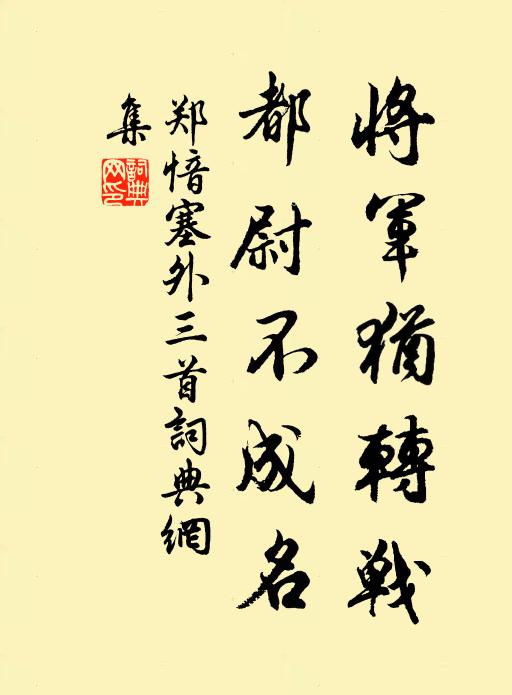 將軍猶轉戰
都尉不成名
郑愔塞外三首詞典網
集
詞典网印